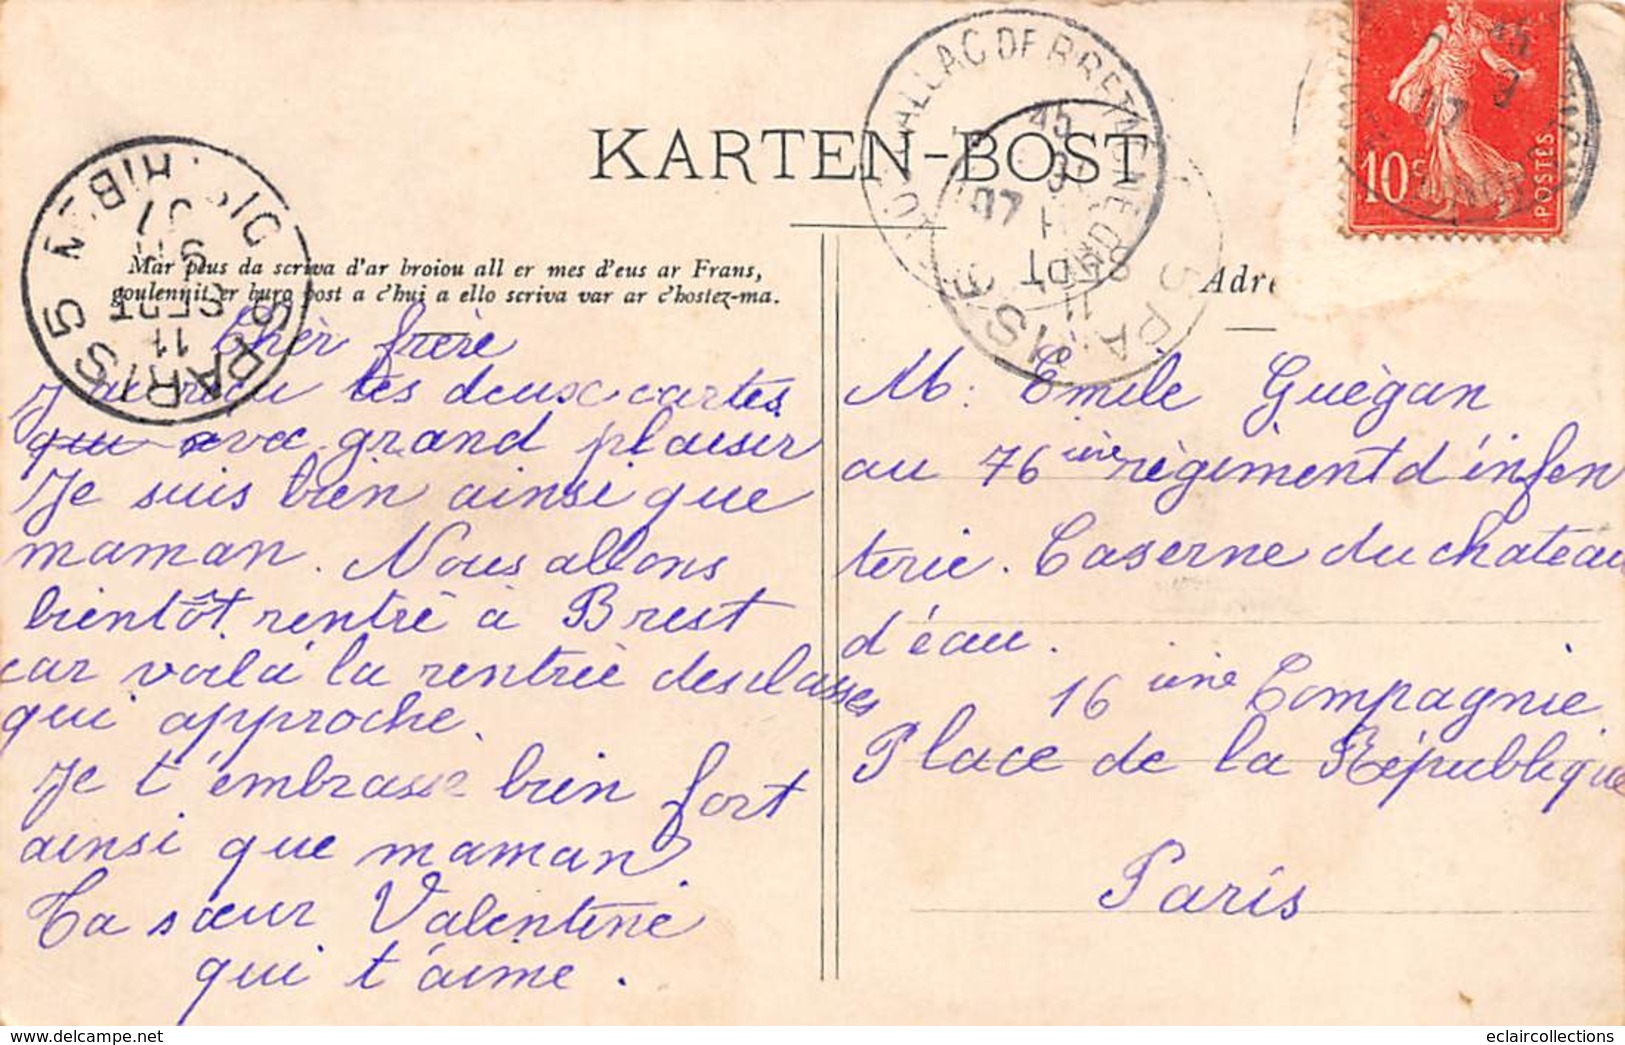 KARTEN-BOST
Mar plus da scriva d'ar broiou all er mes d'eus ar Frans,
goulennit er buro post a c'hui a ello scriva var ar c'hostez-ma.
Adre
10c
POSTES
PARIS 5
11
SEPT
07
PARIS
11
SEPT
07
Cher frère
J'ai recu les deux cartes
qui avec grand plaisir
Je suis bien ainsi que
maman. Nous allons
bientôt rentré à Brest
car voilà la rentrée des classes
qui approche.
Je t'embrasse bien fort
ainsi que maman.
Ta sœur Valentine
qui t'aime.
M. Emile Guégan
au 76 ième régiment d'infen
terie. Caserne du chateau
d'éau.
16 ième Compagnie
Place de la République
Paris
delcampe.net
eclaircollections